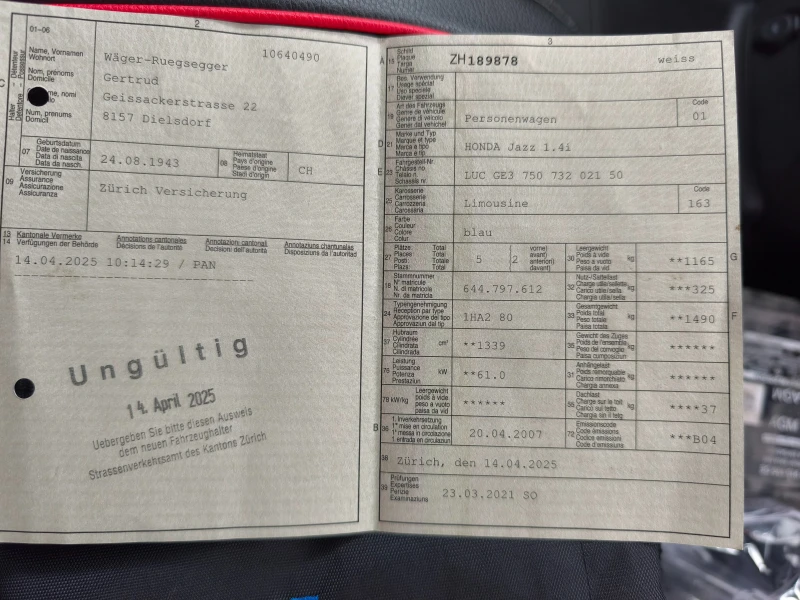 2
01-06
Name, Vornamen
Wohnort
Nom, prénoms
Domicile
Num, prenums
Domicil
10640490
Wäger-Ruegsegger
Gertrud
Geissackerstrasse 22
8157 Dielsdorf
07
Geburtsdatum
Date de naissance
Data di nascita
Data da nasch.
24.08.1943
08
Heimatstaat
Pays d'origine
Paese d'origine
Stadi d'origin
CH
09
Versicherung
Assurance
Assicurazione
Assicuranza
Zürich Versicherung
13
14
Kantonale Vermerke
Verfügungen der Behörde
Annotations cantonales
Décisions de l'autorité
Annotazioni cantonali
Decisioni dell'autorità
Annotaziuns chantunalas
Disposiziuns da l'autoritad
14.04.2025 10:14:29 / PAN
Ungültig
14. April 2025
Uebergeben Sie bitte diesen Ausweis
dem neuen Fahrzeughalter
Strassenverkehrsamt des Kantons Zürich
3
A
15
Schild
Plaque
Targa
Numer
ZH189878
weiss
17
Bes. Verwendung
Usage spécial
Uso speciale
Diever spezial
19
Art des Fahrzeuges
Genre de véhicule
Genere di veicolo
Gener dal vehichel
Personenwagen
Code
01
D
21
Marke und Typ
Marque et type
Marca e tipo
Marca e tip
HONDA Jazz 1.4i
E
23
Fahrgestell-Nr.
Châssis no
Telaio n.
Schassis nr.
LUC GE3 750 732 021 50
25
Karosserie
Carrosserie
Carrozzeria
Carossaria
Limousine
Code
163
26
Farbe
Couleur
Colore
Colur
blau
27
Plätze: Total
Places: Total
Posti: Totale
Plazs: Total
5
2
vorne)
avant)
anteriori)
davant)
30
Leergewicht
Poids à vide
Peso a vuoto
Paisa da vid
kg
**1165
G
18
Stammnummer
N° matricule
N. di matricola
Nr. da matricla
644.797.612
32
Nutz-/Sattellast
Charge utile/sellette
Carico utile/sella
Chargia utila/sella
kg
***325
24
Typengenehmigung
Réception par type
Approvazione del tipo
Approvaziun dal tip
1HA2 80
33
Gesamtgewicht
Poids total
Peso totale
Paisa totala
kg
**1490
F
37
Hubraum
Cylindrée
Cilindrata
Cilindrada
cm³
**1339
Gewicht des Zuges
Poids de l'ensemble
Peso del convoglio
Paisa cumposiziun
kg
******
76
Leistung
Puissance
Potenza
Prestaziun
kW
**61.0
31
Anhängelast
Poids remorquable
Carico rimorchiato
Chargia annexa
kg
******
78 kW/kg
Leergewicht
poids à vide
peso a vuoto
paisa da vid
******
55
Dachlast
Charge sur le toit
Carico sul tetto
Chargia sin il tetg
kg
****37
B
36
1. Inverkehrsetzung
1re mise en circulation
1a messa in circolazione
1. entrada en circulaziun
20.04.2007
72
Emissionscode
Code émissions
Codice emissioni
Code d'emissiuns
***B04
38
Zürich, den 14.04.2025
39
Prüfungen
Expertises
Perizie
Examinaziuns
23.03.2021 SO